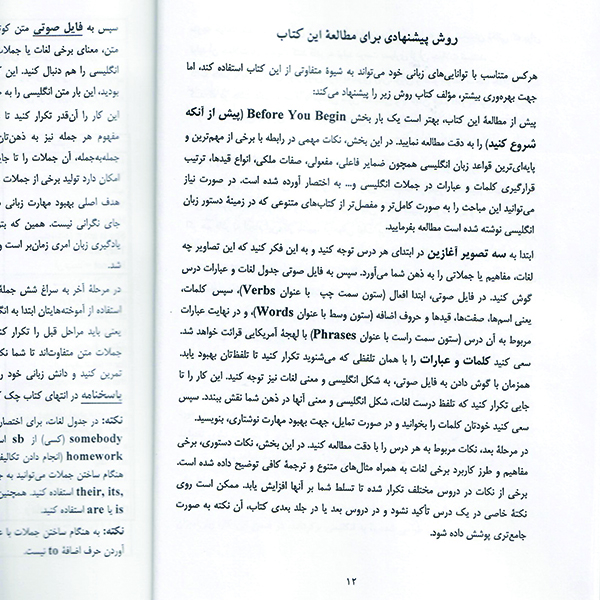 روش پیشنهادی برای مطالعهٔ این کتاب
هرکس متناسب با توانایی‌های زبانی خود می‌تواند به شیوهٔ متفاوتی از این کتاب استفاده کند، اما
جهت بهره‌وری بیشتر، مؤلف کتاب روش زیر را پیشنهاد می‌کند:
پیش از مطالعهٔ این کتاب، بهتر است یک بار بخش Before You Begin (پیش از آنکه
شروع کنید) را به دقت مطالعه نمایید. در این بخش، نکات مهمی در رابطه با برخی از مهم‌ترین و
پایه‌ای‌ترین قواعد زبان انگلیسی همچون ضمایر فاعلی، مفعولی، صفات ملکی، انواع قیدها، ترتیب
قرارگیری کلمات و عبارات در جملات انگلیسی و... به اختصار آورده شده است. در صورت نیاز
می‌توانید این مباحث را به صورت کامل‌تر و مفصل‌تر از کتاب‌های متنوعی که در زمینهٔ دستور زبان
انگلیسی نوشته شده است مطالعه بفرمایید.
ابتدا به سه تصویر آغازین در ابتدای هر درس توجه کنید و به این فکر کنید که این تصاویر چه
لغات، مفاهیم یا جملاتی را به ذهن شما می‌آورد. سپس به فایل صوتی جدول لغات و عبارات درس
گوش کنید. در فایل صوتی، ابتدا افعال (ستون سمت چپ با عنوان Verbs)، سپس کلمات،
یعنی اسم‌ها، صفت‌ها، قیدها و حروف اضافه (ستون وسط با عنوان Words)، و در نهایت عبارات
مربوط به آن درس (ستون سمت راست با عنوان Phrases) با لهجهٔ آمریکایی قرائت خواهد شد.
سعی کنید کلمات و عبارات را با همان تلفظی که می‌شنوید تکرار کنید تا تلفظ‌تان بهبود یابد.
همزمان با گوش دادن به فایل صوتی، به شکل انگلیسی و معنی لغات نیز توجه کنید. این کار را تا
جایی تکرار کنید که تلفظ درست لغات، شکل انگلیسی و معنی آنها در ذهن شما نقش ببندد. سپس
سعی کنید خودتان کلمات را بخوانید و در صورت تمایل، جهت بهبود مهارت نوشتاری، بنویسید.
در مرحلهٔ بعد، نکات مربوط به هر درس را با دقت مطالعه کنید. در این بخش، نکات دستوری، برخی
مفاهیم و طرز کاربرد برخی لغات به همراه مثال‌های متنوع و ترجمهٔ کافی توضیح داده شده است.
برخی از نکات در دروس مختلف تکرار شده تا تسلط شما بر آنها افزایش یابد. ممکن است روی
نکتهٔ خاصی در یک درس تأکید نشود و در دروس بعد یا در جلد بعدی کتاب، آن نکته به صورت
جامع‌تری پوشش داده شود.
۱۲
سپس به فایل صوتی متن کو
متن، معنای برخی لغات یا جملات
انگلیسی را هم دنبال کنید. این
بودید، این بار متن انگلیسی را به
این کار را آن‌قدر تکرار کنید تا
مفهوم هر جمله نیز به ذهن‌تان
جمله‌به‌جمله، آن جملات را تا جای
امکان دارد تولید برخی از جملات
هدف اصلی بهبود مهارت زبانی
جای نگرانی نیست. همین که بتو
یادگیری زبان امری زمان‌بر است و
شد.
در مرحلهٔ آخر به سراغ شش جملهٔ
استفاده از آموخته‌هایتان ابتدا به انگ
یعنی باید مراحل قبل را تکرار کن
جملات متن متفاوت‌اند تا شما نکا
تمرین کنید و دانش زبانی خود را
پاسخنامه در انتهای کتاب چک
نکته: در جدول لغات، برای اختصار
somebody (کسی) از sb اس
homework (انجام دادن تکالیف
هنگام ساختن جملات می‌توانید به ج
their, its, استفاده کنید. همچنین
is یا are استفاده کنید.
نکته: به هنگام ساختن جملات با ع
آوردن حرف اضافهٔ to نیست.